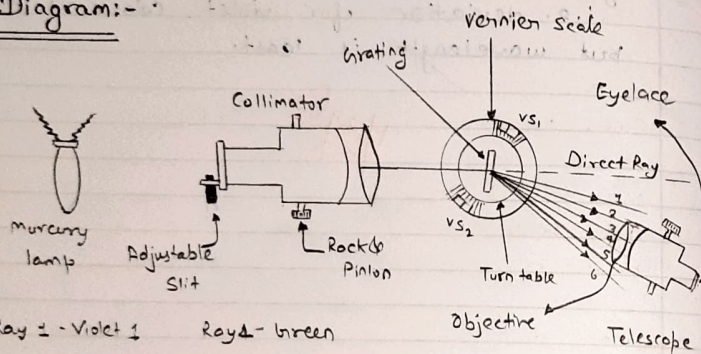 Diagram:-
Vernier Scale
Grating
Eyelace
Collimator
VS1
Direct Ray
1
2
3
4
5
6
VS2
Murcury
lamp
Adjustable
Slit
Rock&
Pinion
Turn table
Objective
Telescope
Ray 1 - Violet 1
Ray4 - Green